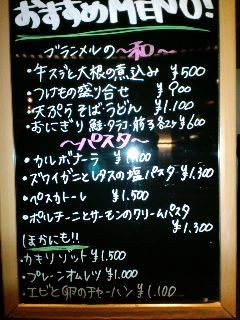 おすすめMENU!
ブランメルの〜和〜
・牛スジと大根の煮込み ¥500
・つけもの盛り合せ ¥900
・天ぷらそば・うどん ¥1.100
・おにぎり 鮭・タラコ・筋子 各2ヶ¥600
〜パスタ〜
・カルボナーラ ¥1.100
・ズワイガニとレタスの塩パスタ ¥1.300
・ペスカトーレ ¥1.500
・ポルチーニとサーモンのクリームパスタ
¥1.300
ほかにも!!
・カキリゾット ¥1.500
・プレーンオムレツ ¥1.000
・エビと卵のチャーハン ¥1.100